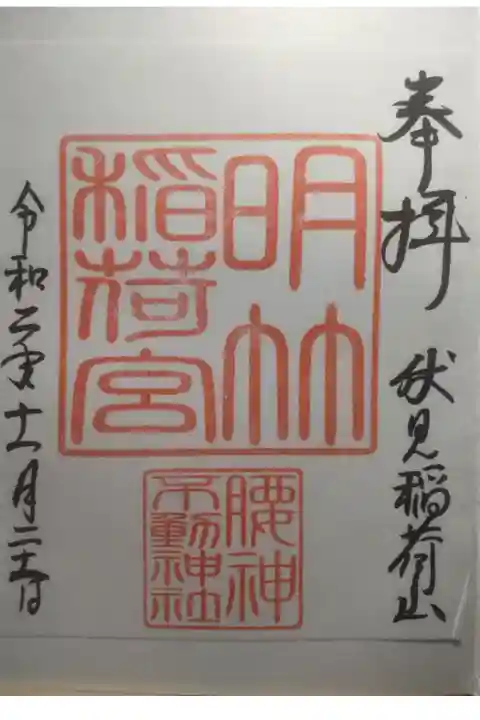 奉拝 伏見稲荷山
明竹
稲荷宮
腰神
不動神社
令和二年十一月二十一日